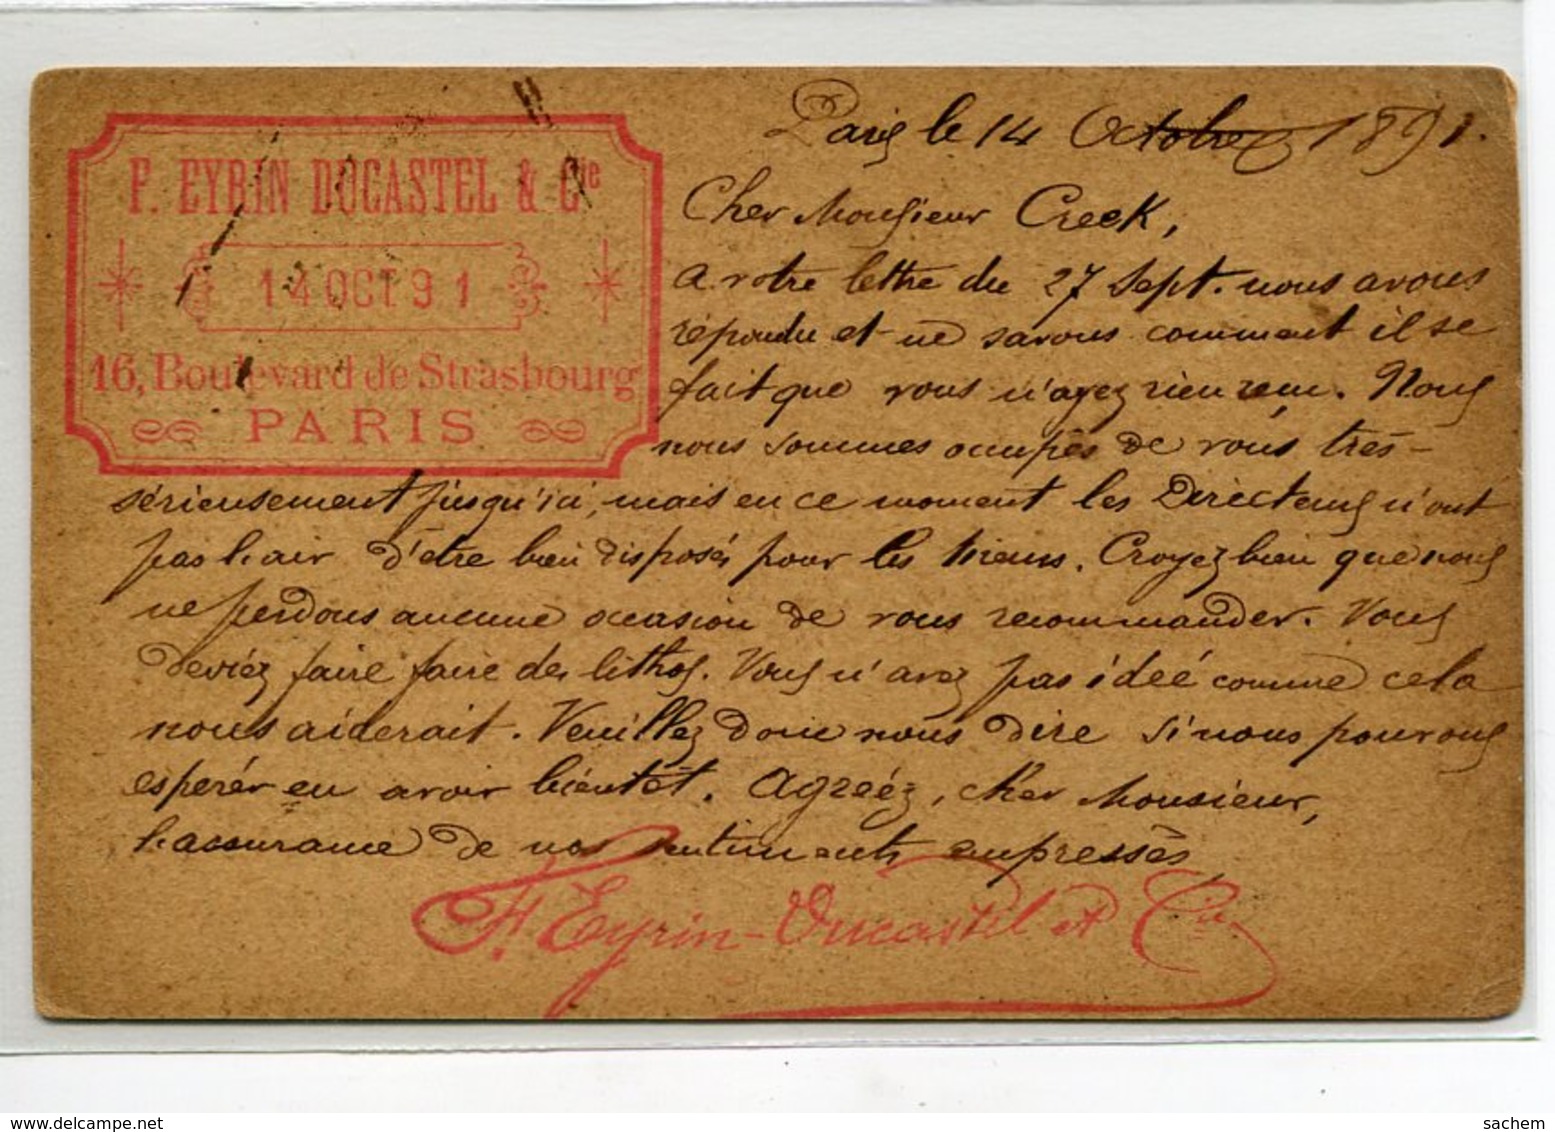 F. EYRIN DUCASTEL & Cie
14 OCT 91
16, Boulevard de Strasbourg
PARIS
Paris le 14 Octobre 1891.
Cher Monsieur Creek,
a votre lettre du 27 Sept. nous avons
répondu et ne savons comment il se
fait que vous n'ayez rien reçu. Nous
nous sommes occupés de vous très-
sérieusement jusqu'ici, mais en ce moment les Directeurs n'ont
pas l'air d'être bien disposés pour les trains. Croyez bien que nous
ne perdons aucune occasion de vous recommander. Vous
devriez faire faire des lithos. Vous n'avez pas idée comme cela
nous aiderait. Veuillez donc nous dire si nous pouvons
esperér en avoir bientôt. Agréez, cher Monsieur,
l'assurance de nos sentiments empressés
F. Eyrin-Ducastel et Cie
sachem
www.delcampe.net